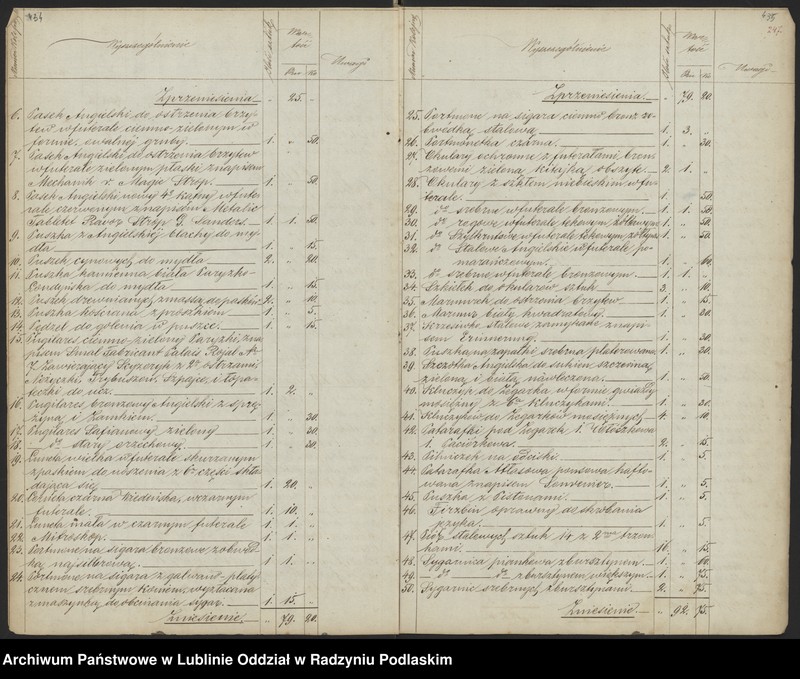 434
Wyszczególnienie
Ilość sztuk
Wartość
Rsr Ko
Uwagi
Z przeniesienia „ 25. „
6. Pasek Angielski do ostrzenia brzy-
tew w futerale ciemno zielonym w
formie, owalnéj gruby. 1. „ 50.
7. Pasek Angielski do ostrzenia brzytew
w futerale zielonym płaski z napisem
Mechanik r. Magic Strop. 1. „ 50.
8. Pasek Angielski nowy 4º kątny w fute-
rale czerwonym z napisem Metalic
Tabletes Razor Strop G Sanders 1. 1. 50.
9. Puszka z Angielskiéj blachy do my-
dła 1. „ 15.
10. Puszek cynowych do mydła 2. „ 20.
11. Puszka kamienna biała Paryzko-
Londyńska do mydła 1. „ 15.
12. Puszek drewnianych z maścią do pasków 2. „ 10.
13. Puszka kościana z proszkiem 1. „ 5.
14. Pędzel do golenia w puszce. 1. „ 15.
15. Pugilares ciemno zielony Paryzki z na-
pisem Fabricant Palais Royal Nº
7 zawierający
uczek do ucz. 1. 2. „
16. Pugilares bronzowy Angielski z sprę-
żyną i zamkiem. 1. „ 30.
17. Pugilares Safianowy zielony 1. „ 30.
18. dº stary orzechowy. 1. „ 20.
19. Luneta wielka w futerale skurzanym
z paskiem do noszenia z 6 części skła-
dająca się 1. 20. „
20. Luneta czarna Wiedeńska, w czarnym
futerale. 1. 10. „
21. Luneta mała w czarnym futerale 1. 1. „
22. Mikroskop. 1. 1. „
23. Portmone na sigara bronzowe
1. 1. „
24. Portmone na sigara z galwano-platy-
cznem srebrnym Koniem, wyzłacana
z maszynką do obcinania sygar. 1. 15. „
Zniesienie. „ 79. 20.
435
247.
Wyszczególnienie
Ilość sztuk
Wartość
Rsr Ko
Uwagi
Z przeniesienia „ 79. 20.
25. Portmone na sigara ciemno bronz. z o-
twódką stalową 1. 3. „
26. Portmonetka czarna. 1. „ 30.
27. Okulary ochronne z futerałami bron-
zowemi zieloną kitajką obszyte. 2. 1. „
28. Okulary z szkłem niebieskim w fu-
terale. 1. „ 50.
29. dº srebrne w futerale bronzowym. 1. 1. 50.
30. dº rogowe w futerale tekowym żółtawym 1. „ 50.
31. dº w futerale tekowym żółtym 1. „ 50.
32. dº Stalowe Angielskie w futerale po-
marańczowym. 1. „ 60.
33. dº srebrne w futerale bronzowym. 1. 1. „
34. Szkiełek do okularów sztuk 3. „ 10.
35. Marmurek do ostrzenia brzytew. 1. „ 15.
36. Marmur biały kwadratowy. 1. „ 20.
37. Krzesiwko stalowe zamykane z napi-
sem Erinnerung. 1. „ 30.
38. Puszka na zapałki srebrna platerowana 1. „ 20.
39. Szczotka Angielska do sukien szczecina
zieloną i białą nawleczona. 1. „ 50.
40. Kluczyk do zegarka w formie gwiazdy
mosiężny z 6º kluczykami. 1. „ 20.
41. Kluczyków do zegarków mosiężnych 4. „ 10.
42. Patarafki pod zegarek 1 Włoszkowa
1. Paciorkowa. 2. „ 15.
43. Pilniczek na odciski. 1. „ 5.
44. Patarafka Atłasowa ponsowa hafto-
wana z napisem Souvenir. 1. „ 5.
45. Puszka z Pistonami. 1. „ 5.
46. Fiszbin oprawny do skrobania
języka. 1. „ 5.
47. Piór stalowych sztuk 14 z 2ma trzon-
kami. 16. „ 15.
48. Sygarnica piankowa z bursztynem. 1. „ 60.
49. dº dº z bursztynem większym. 1. „ 75.
50. Sygarnic srebrnych z bursztynami. 2. „ 75.
Zniesienie. „ 92. 75.
Archiwum Państwowe w Lublinie Oddział w Radzyniu Podlaskim